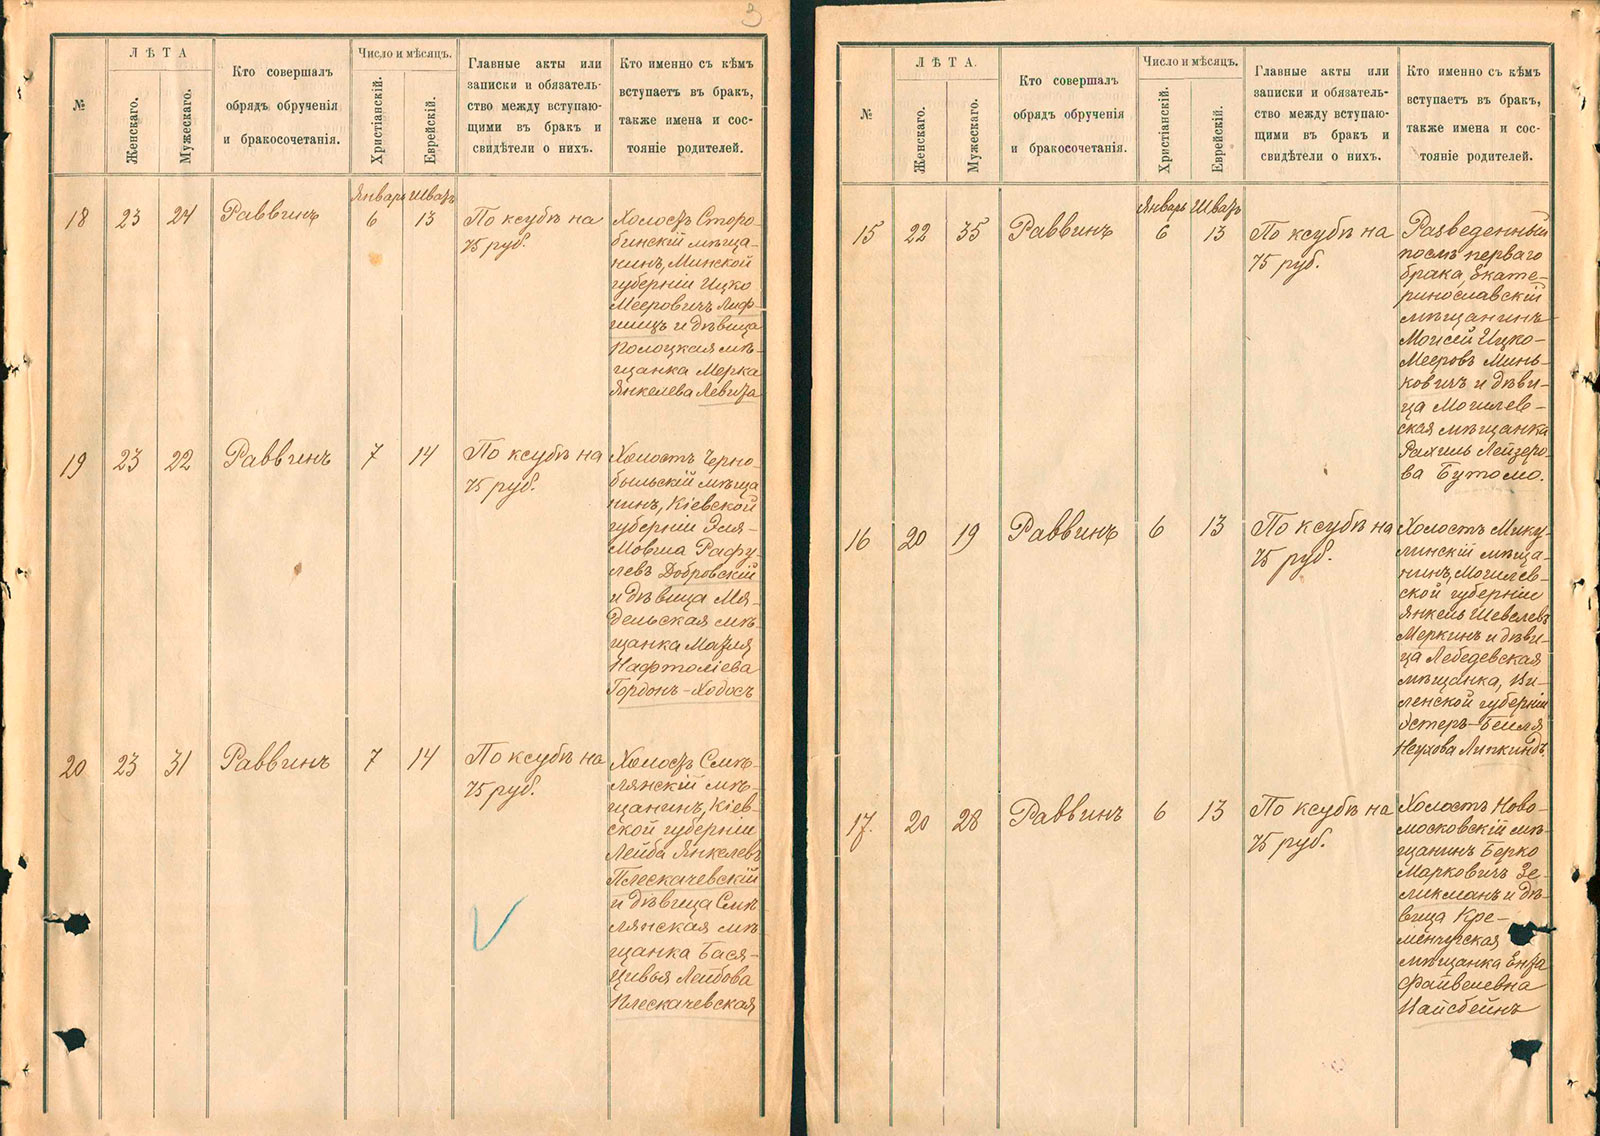 3
№
ЛѢТА
Женскаго.
Мужескаго.
Кто совершалъ
обрядъ обрученія
и бракосочетанія.
Число и мѣсяцъ.
Христіанскій.
Еврейскій.
Главные акты или
записки и обязатель-
ство между вступаю-
щими въ бракъ и
свидѣтели о нихъ.
Кто именно съ кѣмъ
вступаетъ въ бракъ,
также имена и сос-
тояніе родителей.
Январь Шватъ
18 23 24 Раввинъ 6 13
По ксубѣ на
75 руб.
Холостъ Сторо-
бинскій мѣща-
нинъ, Минской
губерніи Ицко
Мееровичъ Лиф-
шицъ и дѣвица
Полоцкая мѣ-
щанка Мерка
Янкелева Левита
19 23 22 Раввинъ 7 14
По ксубѣ на
75 руб.
Холостъ Черно-
быльскій мѣща
нинъ, Кіевской
губерніи Эля-
Мовша Рафу-
левъ Добровскій
и дѣвица Мя-
дельская мѣ-
щанка Марія
Нафтоліева
Гордонъ-Ходосъ
20 23 31 Раввинъ 7 14
По ксубѣ на
75 руб.
Холостъ Смѣ-
лянскій мѣ-
щанинъ, Кіев-
ской губерніи
Лейба Янкелевъ
Плескачевскій
и дѣвица Смѣ
лянская мѣ
щанка Бася-
Цивья Лейбова
Плескачевская
№
ЛѢТА.
Женскаго.
Мужескаго.
Кто совершалъ
обрядъ обрученія
и бракосочетанія.
Число и мѣсяцъ.
Христіанскій.
Еврейскій.
Главные акты или
записки и обязатель-
ство между вступаю-
щими въ бракъ и
свидѣтели о нихъ.
Кто именно съ кѣмъ
вступаетъ въ бракъ,
также имена и сос-
тояніе родителей.
Январь Шватъ
15 22 35 Раввинъ 6 13
По ксубѣ на
75 руб.
Разведенный
послѣ перваго
брака, Екате-
ринославскій
мѣщанинъ
Моисей Ицко-
Мееровъ Минь-
ковичъ и дѣви-
ца Могилев-
ская мѣщанка
Рахиль Лейзеро-
ва Бутомо.
16 20 19 Раввинъ 6 13
По ксубѣ на
75 руб.
Холостъ Мику
линскій мѣща-
нинъ, Могилев-
ской губерніи
Янкель Шевелевъ
Меркинъ и дѣви-
ца Лебедевская
мѣщанка, Ви-
ленской губерніи
Эстеръ-Бейля
Неухова Липкиндъ.
17. 20 28 Раввинъ 6 13
По ксубѣ на
75 руб.
Холостъ Ново-
московскій мѣ-
щанинъ Берко
Марковичъ Зе-
ликманъ и дѣ-
вица Кре-
менчугская
мѣщанка Ента
Файвелевна
Найсбейнъ